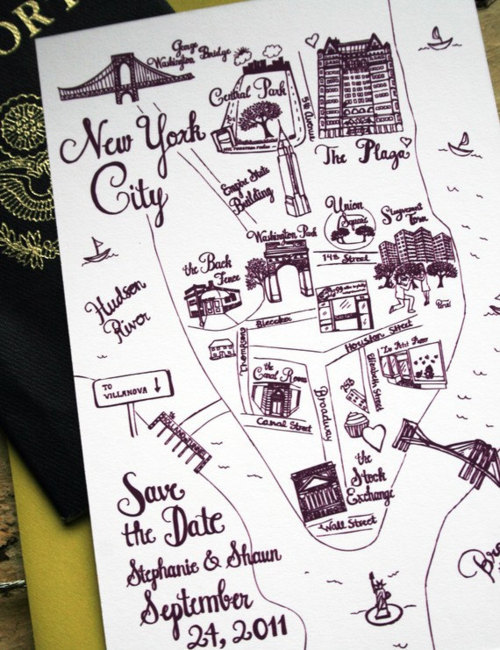 OR
George
Washington Bridge
Central Park
5th Avenue
New York
City
The Plaza
Empire State
Building
Union
Square
Stuyvesant
Town
Washington Park
14th Street
the Back
Fence
Hudson
River
Bleecker
Thompson
Houston Street
the
Canal Room
Elizabeth Street
Broadway
Canal Street
TO
VILLANOVA
the
Stock
Exchange
Wall Street
Save
the Date
Stephanie & Shaun
September
24, 2011